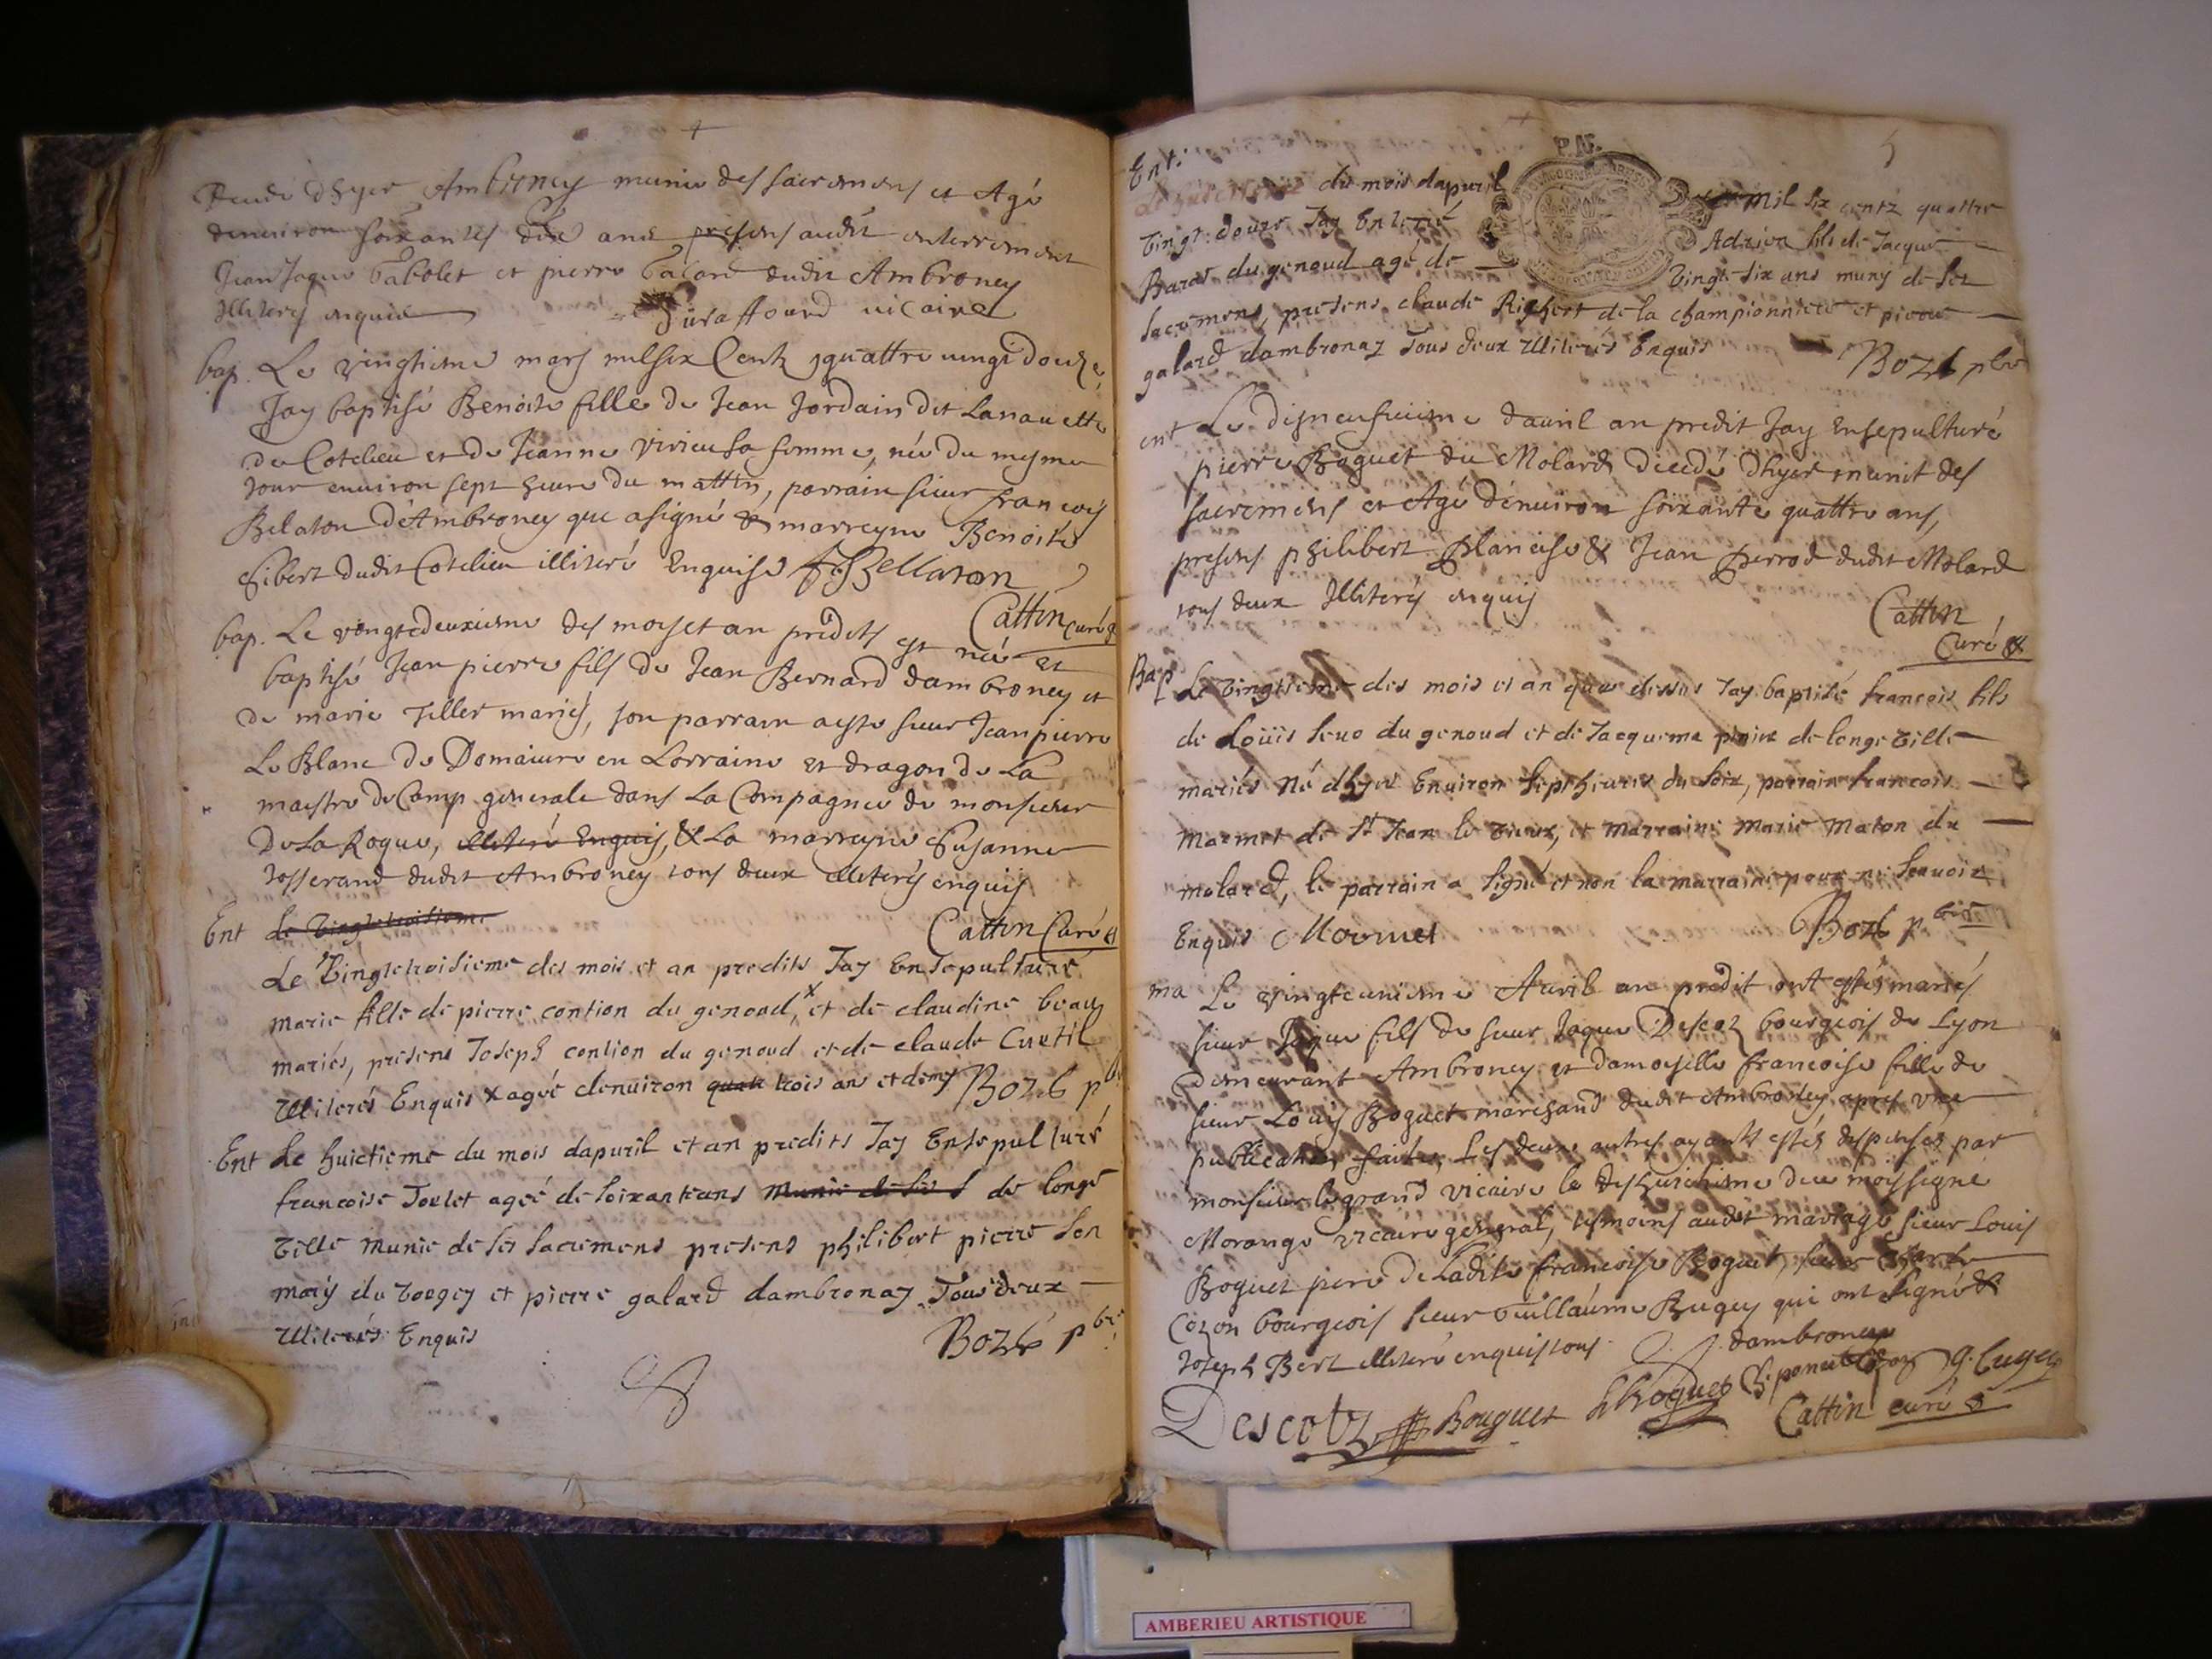 dhyer Ambroney munie des sacremens et Agé
denuiron soixantes dix ans presens audit enterrement
Jean Jaque Babolet et pierre Galard dudit Ambroney
Illiterés enquis
Duraffourd uicaire
bap. Le vingtiesme mars mil six Centz quattre uingt douze,
Jay baptisé Benoite fille de Jean Jordain dit Lanauette
de Cotelieu et de Jeanne Virieu sa femme, née du mesme
Jour enuiron sept heure du mattin, parrain sieur francois
Belaton d'Ambroney que a signé & marreyne Benoite
Gibert dudit Cotelieu illiteré Enquise F Bellaton
Cattin Curé
bap. Le vingtedeuxiesme des mois et an predits est née et
baptisé Jean pierre fils de Jean Bernard dambroney et
de marie Tiller mariés, son parrain a esté sieur Jean pierre
Le Blanc de Domaiure en Lorraine et dragon de La
maestre de Camp generale dans La Compagnie de monsieur
De La Roque, illiteré Enquis, & La marreyne Susanne
Josserand dudit Ambroney tous deux illiterés enquis
Cattin Curé
Ent Le Vingtetroisieme
Le Vingtetroisieme des mois et an predits Jay Ensepulturé
marie fille de pierre contion du genoud, x et de claudine beau
mariés, presens Joseph contion du genoud et de claude Curtil
Illiterés Enquis x agée denuiron quatr trois ans et demy Bozb pbr
Ent Le huictieme du mois dapuril et an predits Jay Ensepulturé
francoise Joelet ageé de soixante ans munie de ses s de longe
Ville munie de ses sacremens presens philibert pierre son
mary du Vorgey et pierre galard dambronay Tous deux
Illiterés Enquis
Bozb pbre
5
Ent.
du mois dapuril
P.NF.
mil six centz quattre
Vingt. douze Jay Enterré
Adrien fils de Jacque
Baras du genoud agé de
Vingte six ans muny de ses
sacremens, presens claude Righert de la championniere et pierre
galard dambronaz Tous deux Illiterés Enquis
Bozb pbr
ent Le disneufuiesme dauril an predit Jay Ensepulturé
pierre Boguet du Molard decedé dhyer munit des
sacremens et Agé denuiron soixante quattre ans,
presens philibert planche & Jean perrod dudit Molard
tous deux Illiterés enquis
Cattin
Curé
Bap Le Vingtieme des mois et an que dessus Jay baptisé francois fils
de Loüis seuo du genoud et de Jacquema de longe Ville
mariés Né dhyer Enuiron sept heures du soir, parrain francois
marmet de st Jean le Vieux, et marraine marie maton du
molard, le parrain a signé et non la marraine pour ne scauoir
Enquis Marmet
Bozb pbre
ma Le vingteunieme Auril an predit ont estés mariés
sieur Jaque fils de sieur Jaque Descoz bourgeois de Lyon
demeurant Ambroney et damoyselle francoise fille de
sieur Louis Boguet marchand dudit Ambroney, apres vne
publication faites, Les deux autres ayants estés dispensés par
monsieur le grand vicaire le dishuictiesme du mois signé
Morange vicaire general, tesmoins audit mariage sieur Louis
Boguet pere de Ladite francoise Boguet, sieur
Cozon bourgeois sieur Guillaume Bugey qui ont signé &
Joseph Bert illiteré enquis tous dambroney
Descotz Bouguet L Boguet g. bugey
Cattin curé
AMBERIEU ARTISTIQUE